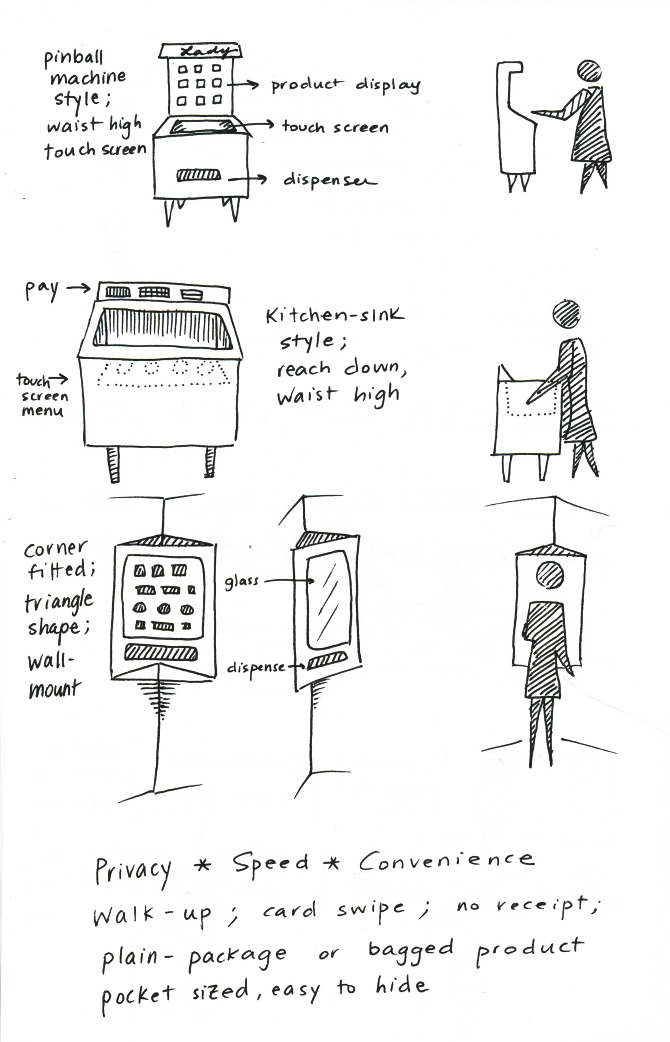 Lady
pinball
machine
style;
waist high
touch screen
product display
touch screen
dispenser
pay
touch
screen
menu
Kitchen-sink
style;
reach down,
waist high
corner
fitted;
triangle
shape;
wall-
mount
glass
dispense
Privacy * Speed * Convenience
Walk-up ; card swipe ; no receipt;
plain-package or bagged product
pocket sized, easy to hide